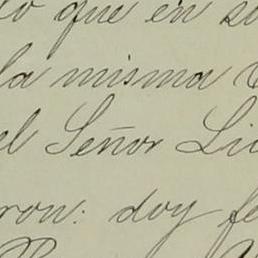 lo que en su
la misma
el Señor Li
ron: doy fe